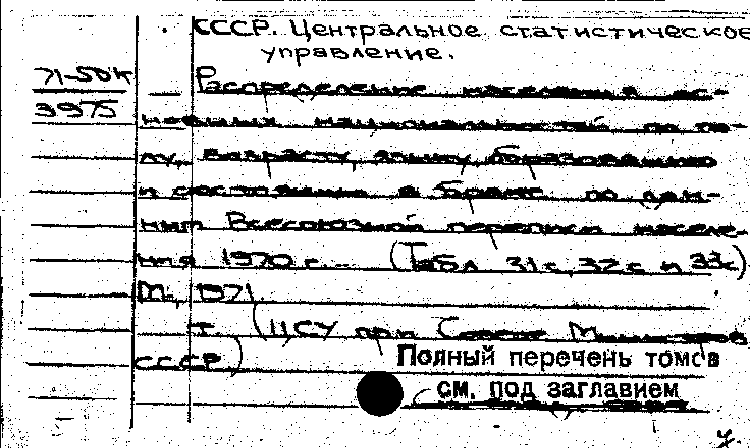 СССР. Центральное статистическое
управление.
71-50к
3975
Распределение населения ос-
новных национальностей по по-
лу, возрасту, языку, образованию
и состоянию в браке по дан-
ным Всесоюзной переписи населе-
ния 1970 г... (Табл 31с, 32с и 33с)
М., 1971
т. (ЦСУ при Совете Министров
СССР)
Полный перечень томов
см. под заглавием